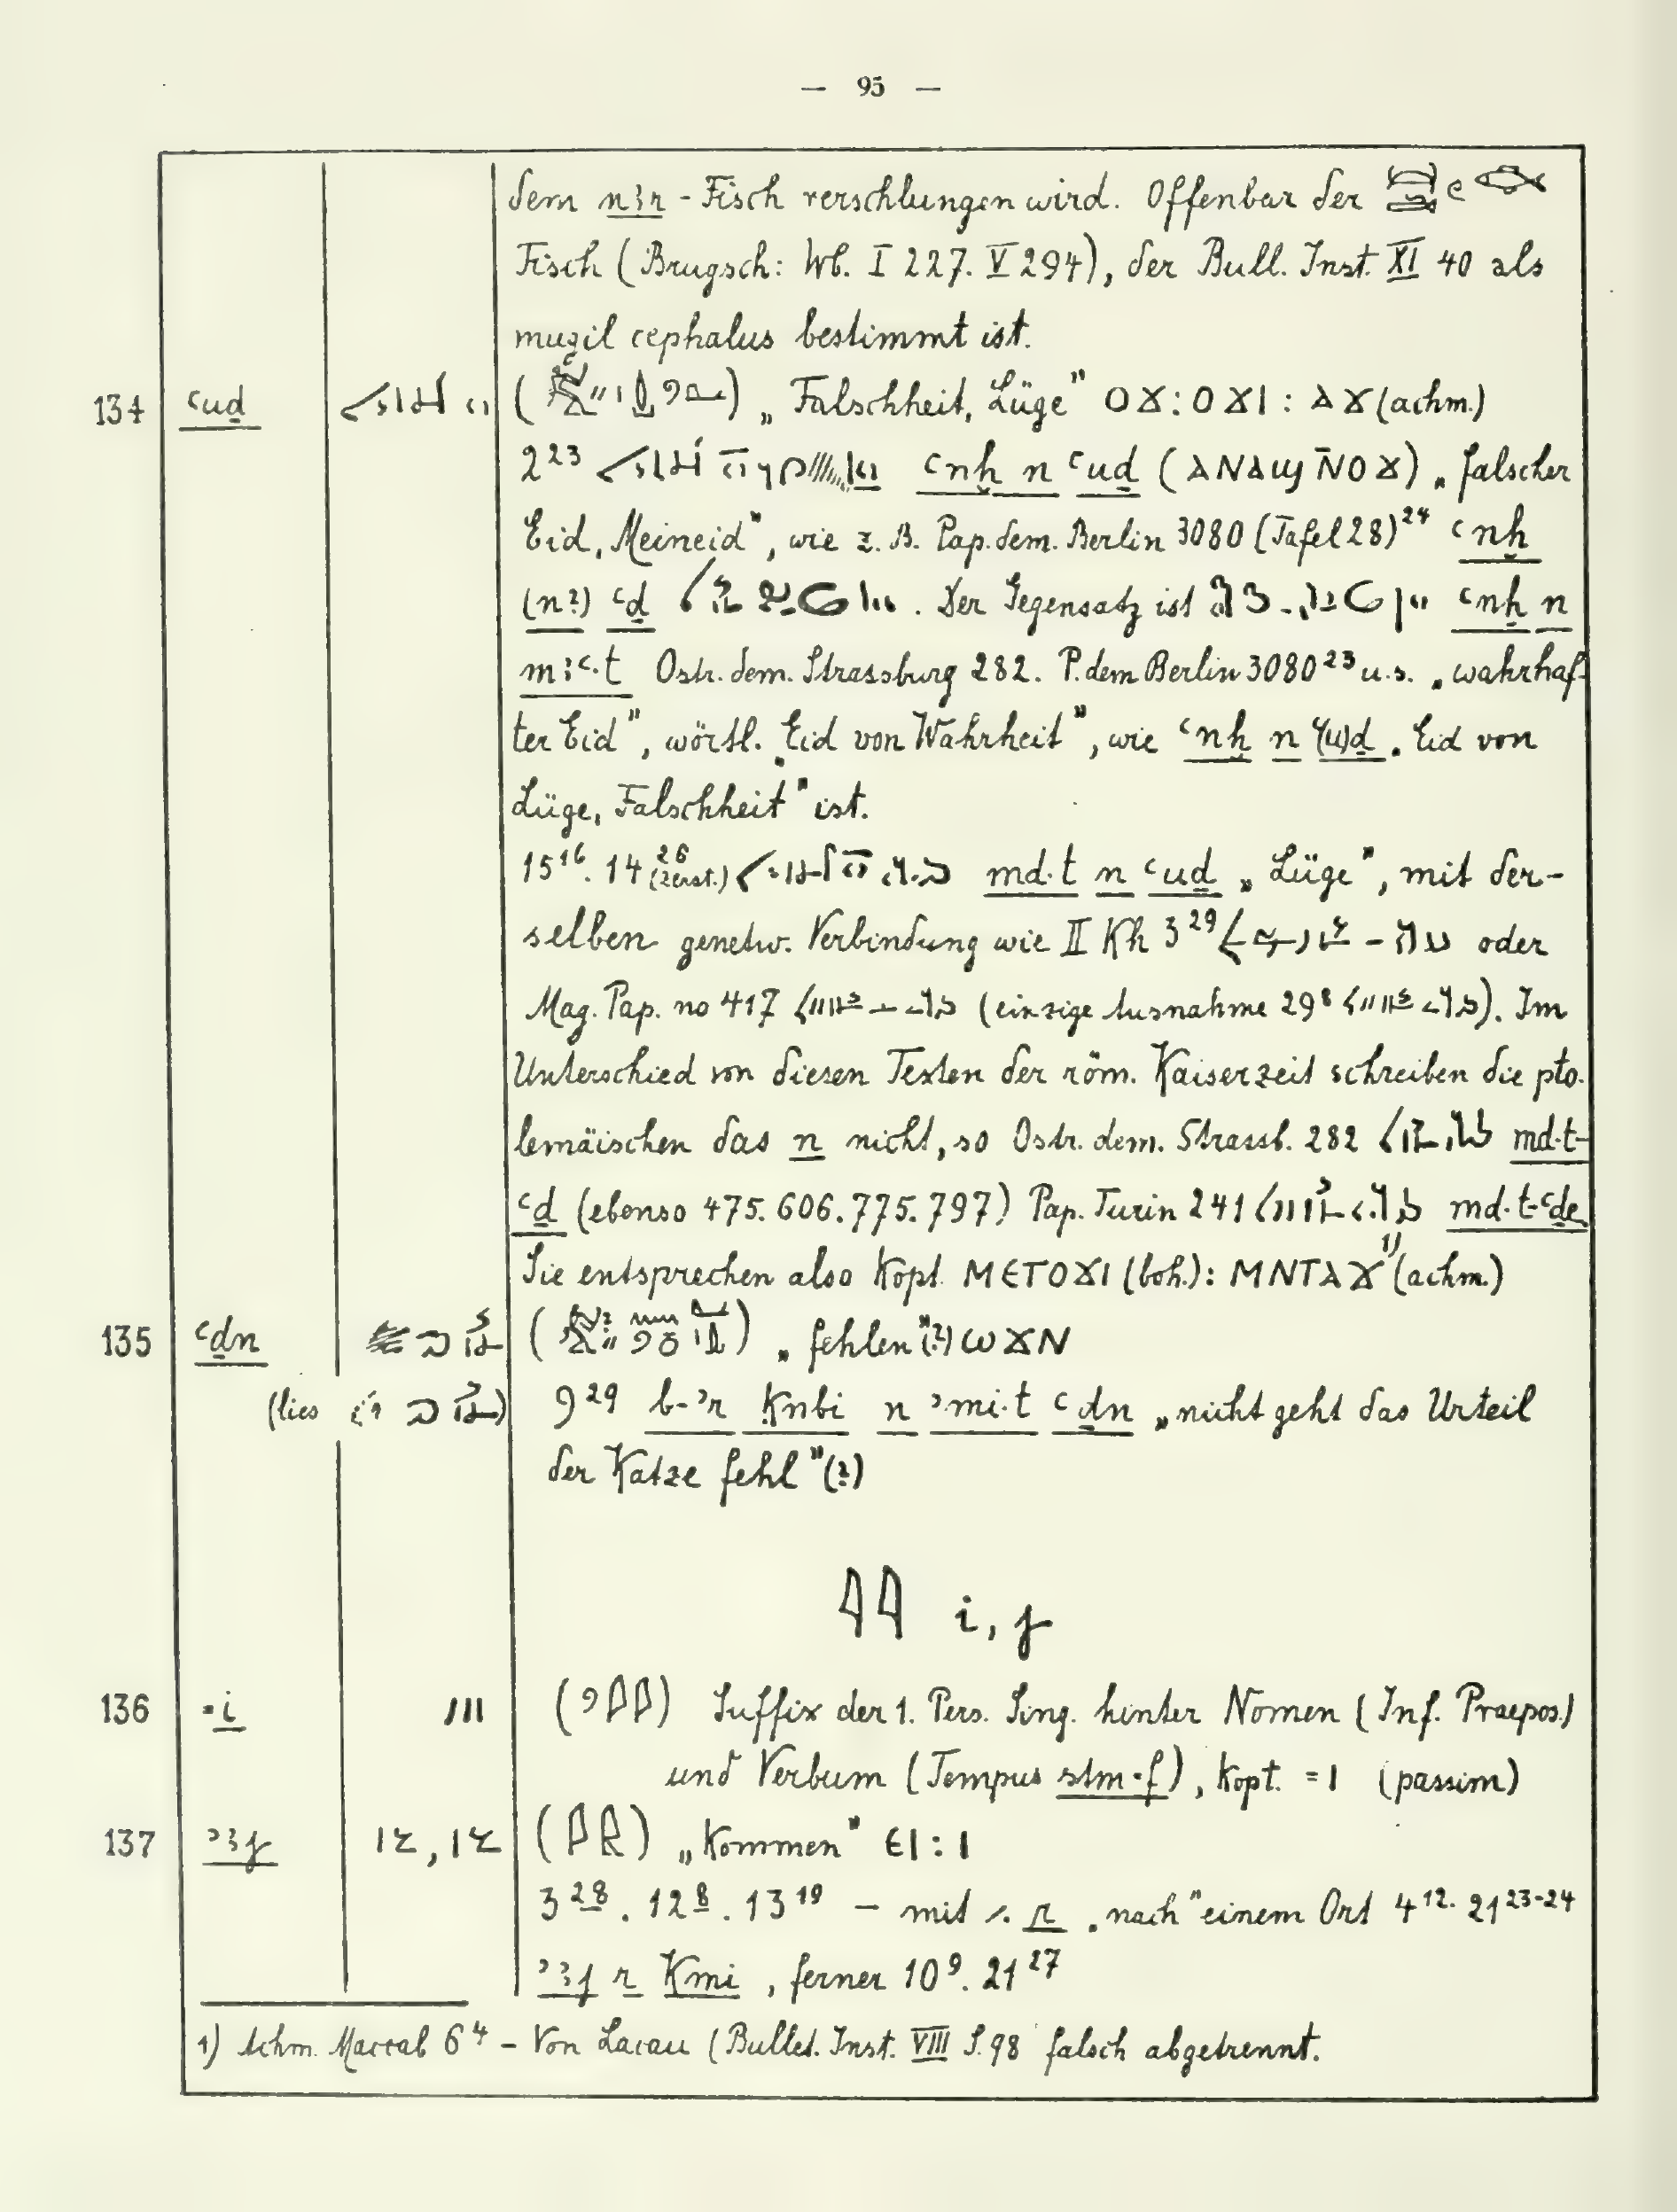 — 95 —
dem nꜣr - Fisch verschlungen wird. Offenbar der
Fisch (Brugsch: Wb. I 227. V 294), der Bull. Inst. XI 40 als
mugil cephalus bestimmt ist.
134 ꜥuḏ ( ) „Falschheit, Lüge" ⲟϫ : ⲟϫⲓ : ⲁϫ (achm.)
2²³ ꜥnḫ n ꜥuḏ (ⲁⲛⲁϣ ⲛ̄ⲟϫ) „falscher
Eid, Meineid", wie z. B. Pap. dem. Berlin 3080 (Tafel 28)²⁴ ꜥnḫ
(n?) ꜥḏ . Der Gegensatz ist ꜥnḫ n
mꜣꜥ.t Ostr. dem. Strassburg 282. P. dem Berlin 3080²³ u.s. „wahrhaf-
ter Eid", wörtl. „Eid von Wahrheit", wie ꜥnḫ n ꜥ(u)ḏ „Eid von
Lüge, Falschheit" ist.
15¹⁶. 14²⁶ (zerst.) md.t n ꜥuḏ „Lüge", mit der-
selben genetw. Verbindung wie II Kh 3²⁹ oder
Mag. Pap. no 417 (einzige Ausnahme 29⁸ ). Im
Unterschied von diesen Texten der röm. Kaiserzeit schreiben die pto-
lemäischen das n nicht, so Ostr. dem. Strassb. 282 md.t-
ꜥḏ (ebenso 475. 606. 775. 797) Pap. Turin 241 md.t-ꜥḏe
Sie entsprechen also Kopt. ⲙⲉⲧⲟϫⲓ (boh.) : ⲙⲛⲧⲁϫ¹⁾ (achm.)
135 ꜥḏn ( ) „fehlen"(?) ⲱϫⲛ
(lies ) 9²⁹ b-ꜣr Ḳnbi n ꜣmi.t ꜥḏn „nicht geht das Urteil
der Katze fehl"(?)
𓇋𓇋 i, j
136 =i ( ) Suffix der 1. Pers. Sing. hinter Nomen (Inf. Praepos.)
und Verbum (Tempus stm=f), Kopt. =ⲓ (passim)
137 ꜣꜣj ( ) „Kommen" ⲉⲓ : ⲓ
3²⁸. 12⁸. 13¹⁹ — mit r „nach" einem Ort 4¹². 21²³⁻²⁴
ꜣꜣj r Kmi, ferner 10⁹. 21²⁷
1) Achm. Maccab 6⁴ – Von Lacau (Bullet. Inst. VIII S. 98 falsch abgetrennt.